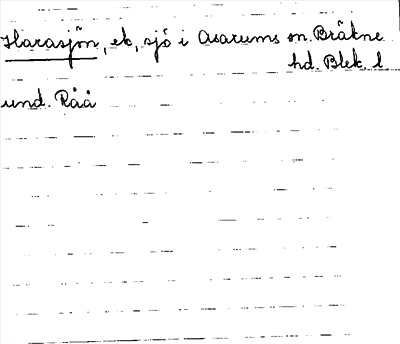 Harasjön, ek, sjö i Asarums sn. Bräkne
hd. Blek. l
und. Råå